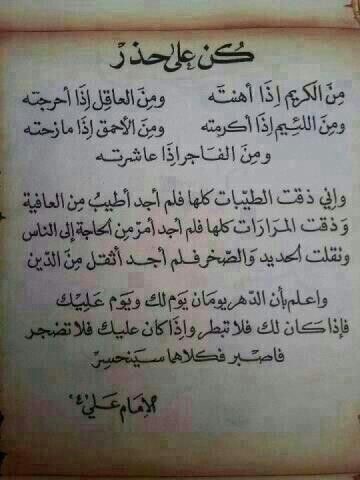 كُن على حذرْ
مِنَ الكريم إذَا أهنتَه ومِنَ العاقِل إذَا أحرجته
ومِنَ اللئيم إذَا أكرمته ومِنَ الأحمق إذَا مازحته
ومِنَ الفَاجر إذا عاشرته
وإني ذقت الطيّبات كلها فلم أجد أطيبُ مِن العافية
وَذقت المَرَارَات كلها فلم أجد أمرّ مِن الحاجة إلى الناس
ونقلت الحديد وَالصّخر فلم أجد أثقل مِنَ الدّين
واعلم بأن الدّهر يومَان يَوم لك ويَوم عَليك
فإذا كانَ لك فلا تبطر وإذا كان عليك فلا تضجر
فاصْبر فكلاهما سَينحسِرْ
الإمَام عَلي "ع"